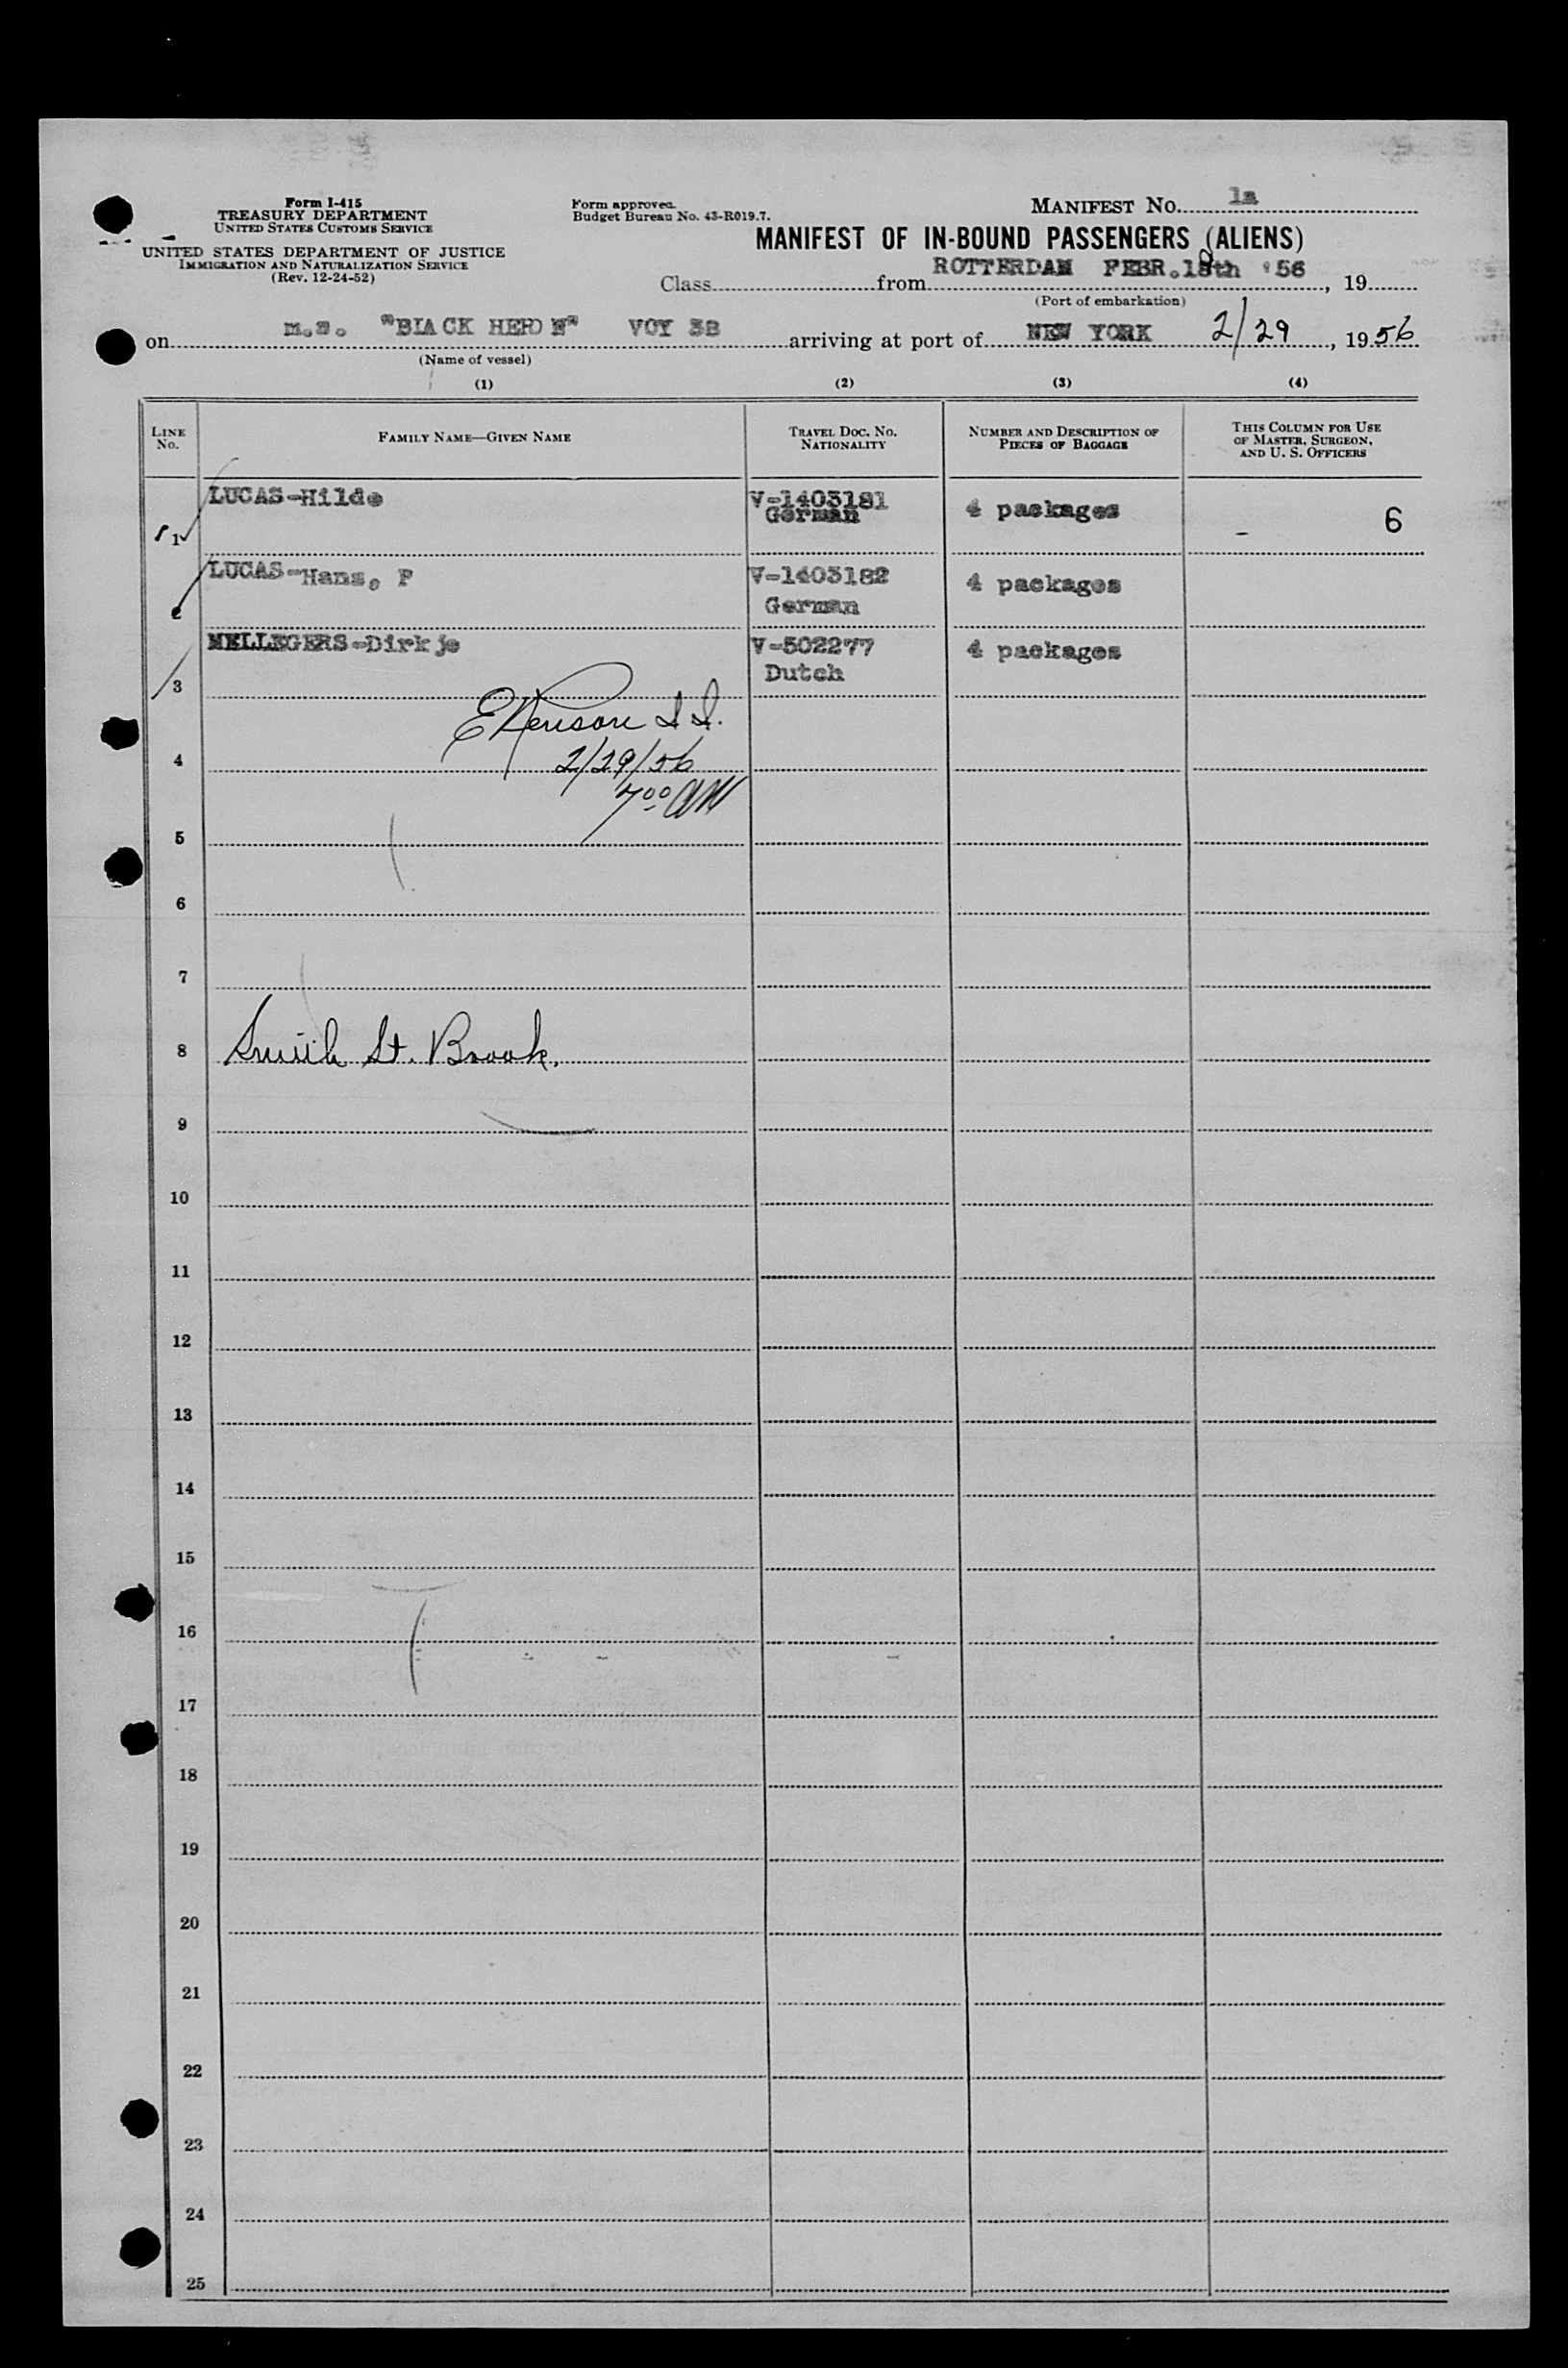 Form I-415
TREASURY DEPARTMENT
UNITED STATES CUSTOMS SERVICE
UNITED STATES DEPARTMENT OF JUSTICE
IMMIGRATION AND NATURALIZATION SERVICE
(Rev. 12-24-52)
Form approved.
Budget Bureau No. 43-R019.7.
MANIFEST NO. 1a
MANIFEST OF IN-BOUND PASSENGERS (ALIENS)
Class from ROTTERDAM FEBR.18th '56, 19
(Port of embarkation)
on m.s. "BLACK HERON" VOY 38 arriving at port of NEW YORK 2/29, 1956
(Name of vessel)
(1) (2) (3) (4)
LINE NO. FAMILY NAME—GIVEN NAME TRAVEL DOC. NO. NATIONALITY NUMBER AND DESCRIPTION OF PIECES OF BAGGAGE THIS COLUMN FOR USE OF MASTER, SURGEON, AND U. S. OFFICERS
1 LUCAS-Hilde V-1403181 German 4 packages - 6
2 LUCAS-Hans, P V-1403182 German 4 packages
3 MELLEGERS-Dirkje V-502277 Dutch 4 packages
4 2/29/56
7:00 AM
5
6
7
8 Smith St. Brook.
9
10
11
12
13
14
15
16
17
18
19
20
21
22
23
24
25